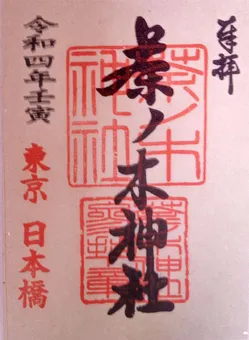 奉拝
茶ノ木神社
茶ノ木
神社
令和四年壬寅
東京 日本橋